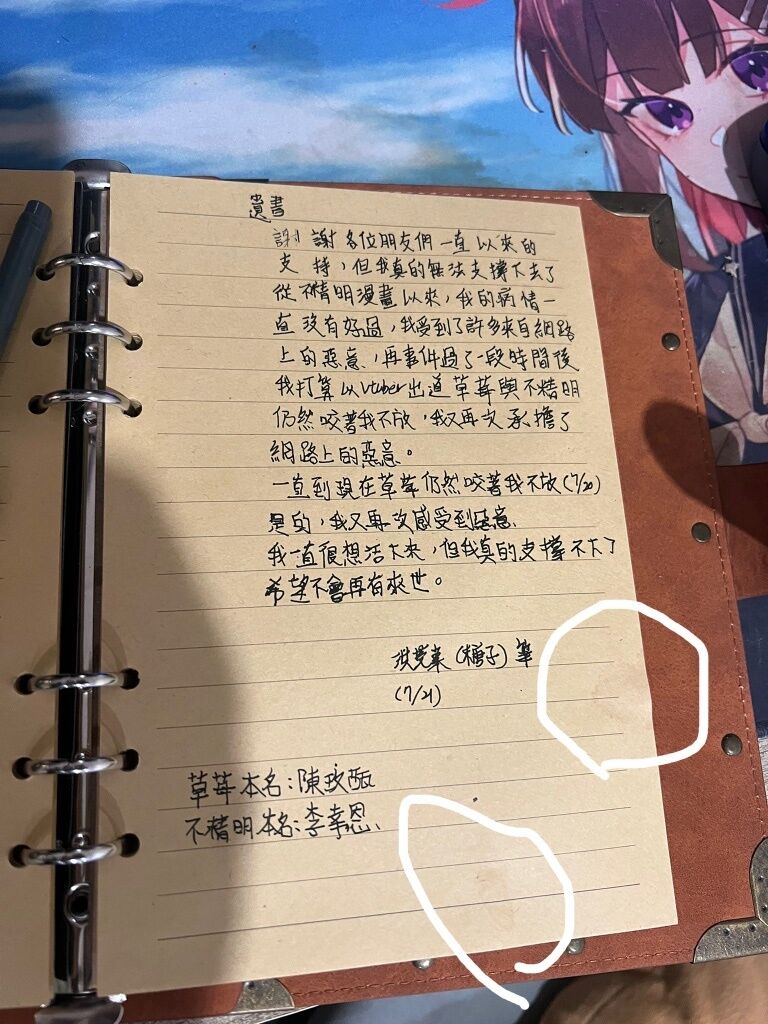 遺書
謝謝各位朋友們一直以來的
支持，但我真的無法支撐下去了
從不精明漫畫以來，我的病情一
直沒有好過，我受到了許多來自網路
上的惡意，再事件過了一段時間後
我打算以vtuber出道草莓與不精明
仍然咬著我不放，我又再次承擔了
網路上的惡意。
一直到現在草莓仍然咬著我不放(7/20)
是的，我又再次感受到惡意
我一直很想活下來，但我真的支撐不下了
希望不會再有來世。
(種子)筆
(7/21)
草莓本名：陳玫
不精明本名：李幸恩